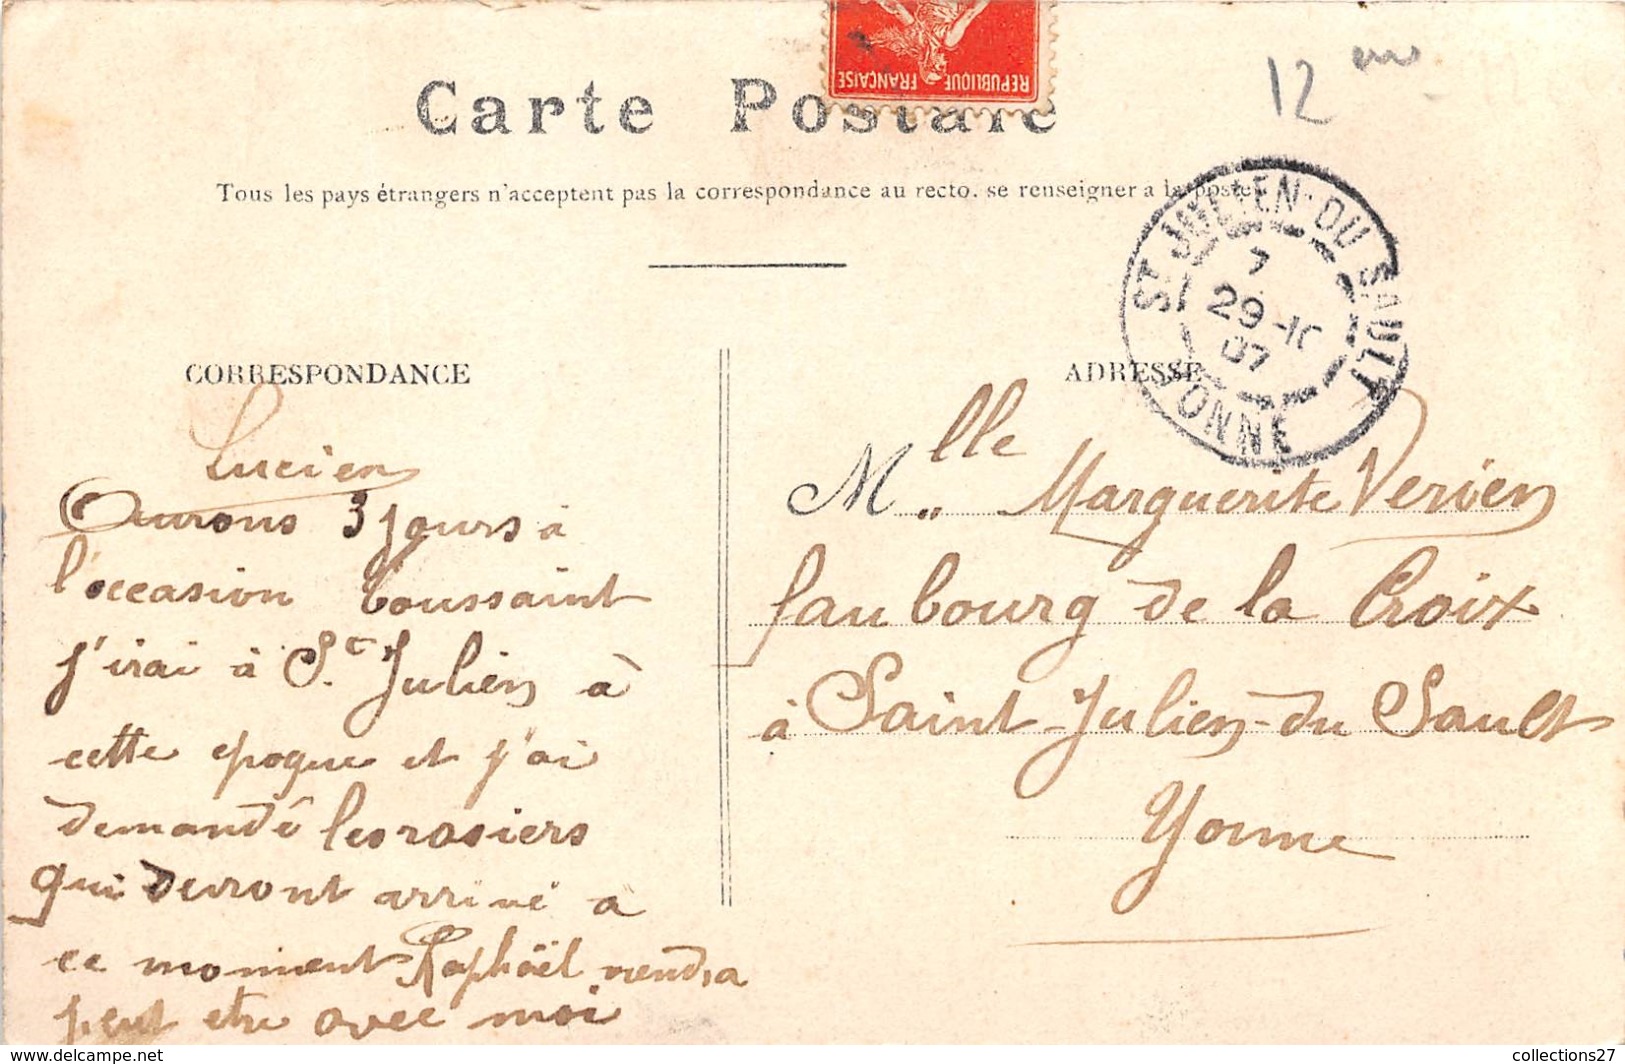 12 em
REPUBLIQUE FRANÇAISE
Carte Postale
Tous les pays étrangers n'acceptent pas la correspondance au recto. se renseigner a la poste
ST JULIEN-DU-SAULT
7
29-10
07
YONNE
CORRESPONDANCE
Lucien
Aurons 3 jours à
l'occasion Toussaint
j'irai à St Julien à
cette epoque et j'ai
demandé les rosiers
qui devront arrivé a
ce moment Raphaël viendra
peut etre avec moi
ADRESSE
Mlle Marguerite Verien
faubourg de la Croix
à Saint-Julien-du Sault
Yonne
collections27